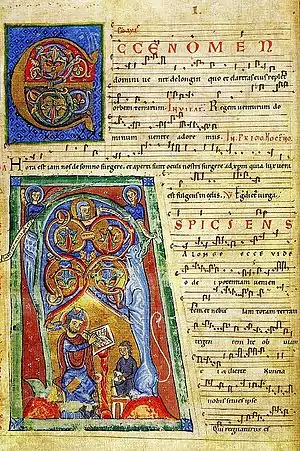 I.
ECCE NOMEN
domini ue nit delongin quo et claritas eius replet
orbem terrarum. Inuitat. Regem uenturum do
minum uenite adore mus.
Hora est iam nos de somno surgere. et aperti sunt oculi nostri surgere ad xpm quia lux uera
est fulgens in celis. Egredietur uirga.
ASPICIENS
A LONGE ECCE VIDE
o dei potentiam uenien
tem et nebulam totam terram
tegentem Ite obuiam
ei et dicite Nuntia
nobis si tu es ipse
Qui regnaturus es